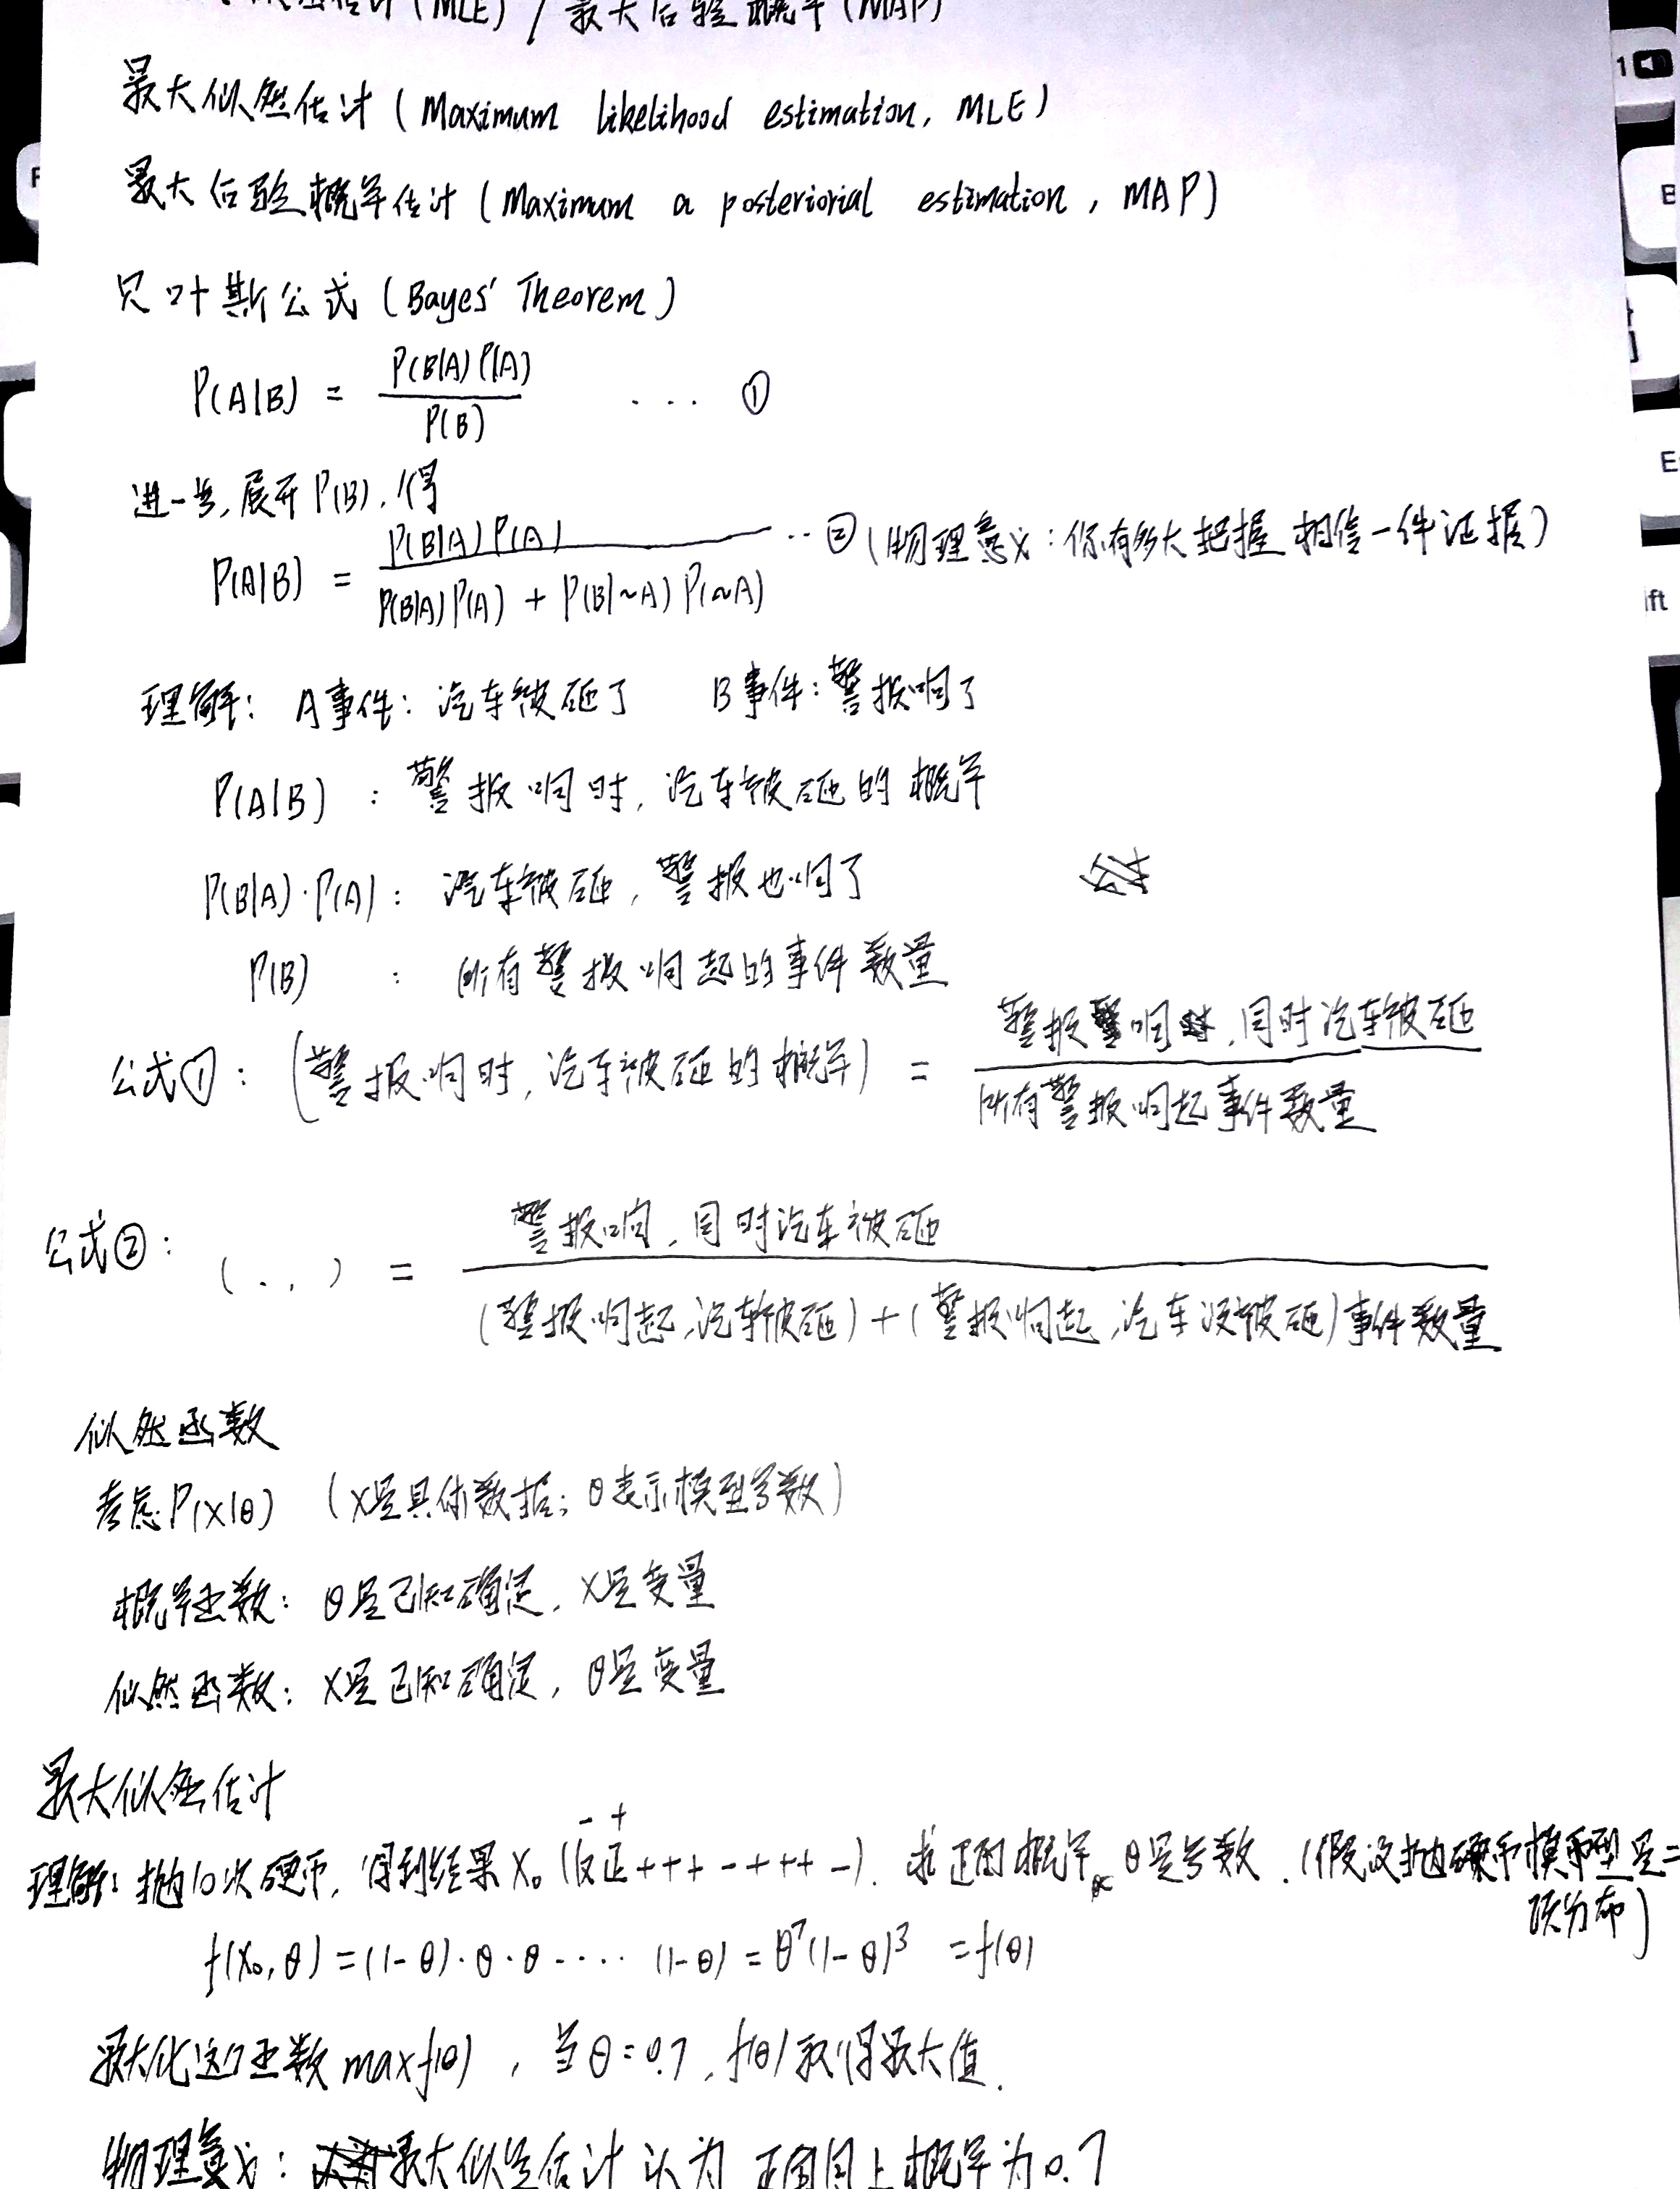 最大似然估计(MLE) / 最大后验概率(MAP)
最大似然估计 ( Maximum likelihood estimation, MLE )
最大后验概率估计 ( Maximum a posteriorial estimation, MAP )
贝叶斯公式 ( Bayes' Theorem )
P(A|B) = P(B|A) P(A) / P(B) ... ①
进一步, 展开 P(B), 得
P(A|B) = P(B|A) P(A) / P(B|A) P(A) + P(B|~A) P(~A) ... ② (物理意义: 你有多大把握相信一件证据)
理解: A事件: 汽车被砸了 B事件: 警报响了
P(A|B) : 警报响时, 汽车被砸的概率
P(B|A)·P(A): 汽车被砸, 警报也响了
P(B) : 所有警报响起的事件数量
公式①: (警报响时, 汽车被砸的概率) = 警报响, 同时汽车被砸 / 所有警报响起事件数量
公式②: (...) = 警报响, 同时汽车被砸 / (警报响起, 汽车被砸) + (警报响起, 汽车没被砸) 事件数量
似然函数
考虑 P(x|θ) (x是具体数据; θ表示模型参数)
概率函数: θ是已知确定, x是变量
似然函数: x是已知确定, θ是变量
最大似然估计
- +
理解: 抛10次硬币, 得到结果 X₀ (反正+++-+++-). 求正的概率, θ是参数. (假设抛硬币模型是二
项分布)
f(x₀, θ) = (1-θ)·θ·θ ···· (1-θ) = θ⁷(1-θ)³ = f(θ)
最大化这个函数 max f(θ), 当 θ=0.7, f(θ)取得最大值.
物理意义: 最大似然估计认为正面向上概率为0.7